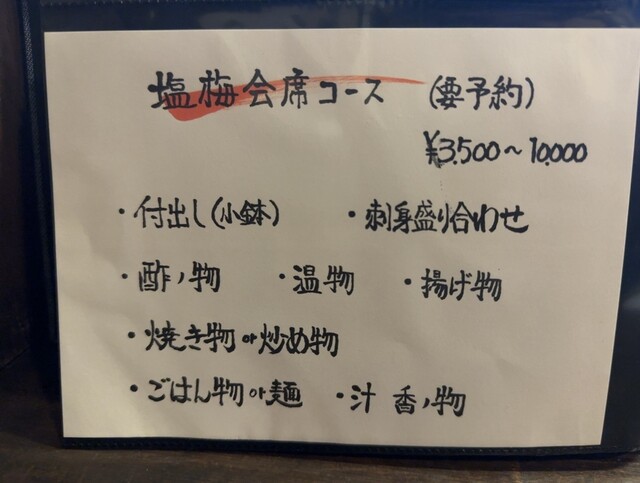 塩梅会席コース (要予約)
¥3,500～10,000
・付出し(小鉢) ・刺身盛り合わせ
・酢ノ物 ・温物 ・揚げ物
・焼き物or炒め物
・ごはん物or麺 ・汁 香ノ物